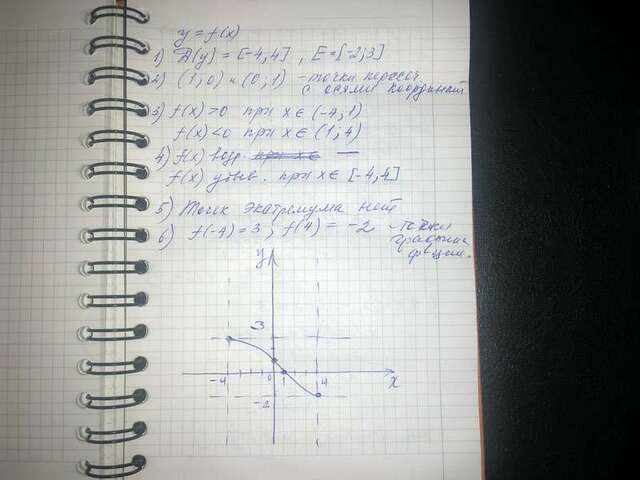 y = f(x)
1) Д(y) = [-4,4] , E = [-2;3]
2) (1,0) и (0,1) - точки пересеч.
с осями координат
3) f(x) > 0 при x ∈ (-4,1)
f(x) < 0 при x ∈ (1,4)
4) f(x) возр. при x ∈ —
f(x) убыв. при x ∈ [-4,4]
5) Точек экстремума нет
6) f(-4) = 3 , f(4) = -2 - точки
графика
y
3
-4
0
1
4
x
-2